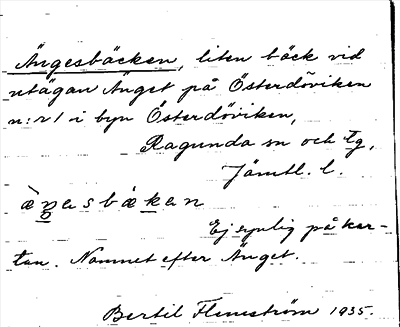 Ängesbäcken, liten bäck vid
utägan Änget på Österdöviken
n:r 1 i byn Österdöviken,
Ragunda sn och tg,
Jämtl. l.
Ej synlig på kar-
tan. Namnet efter Änget.
Bertil Flemström 1935.